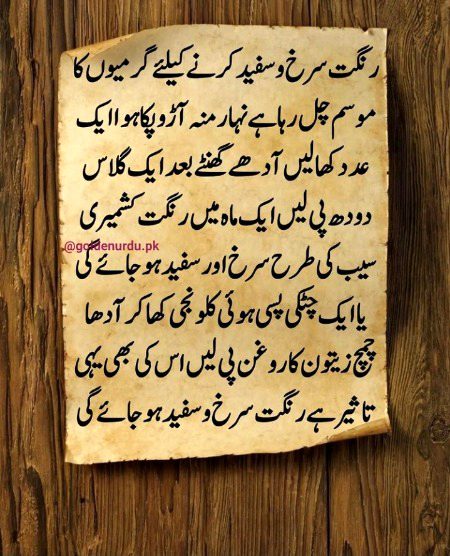 رنگت سرخ و سفید کرنے کیلئے گرمیوں کا
موسم چل رہا ہے نہار منہ آڑو پکا ہوا ایک
عدد کھا لیں آدھے گھنٹے بعد ایک گلاس
دودھ پی لیں ایک ماہ میں رنگت کشمیری
@goldenurdu.pk
سیب کی طرح سرخ اور سفید ہو جائے گی
یا ایک چٹکی پسی ہوئی کلونجی کھا کر آدھا
چمچ زیتون کا روغن پی لیں اس کی بھی یہی
تاثیر ہے رنگت سرخ و سفید ہو جائے گی